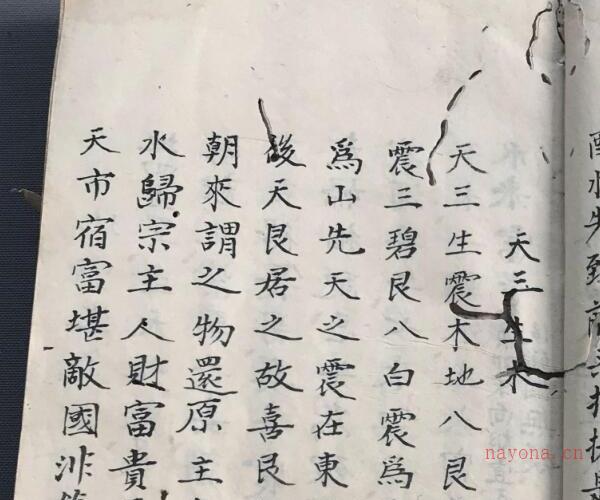 天三生木
天三生震木地八艮
震三碧艮八白震爲
爲山先天之震在東
後天艮居之故喜艮
朝來謂之物還原主
水歸宗主人財富貴
天市宿富堪敵國
nayona.cn